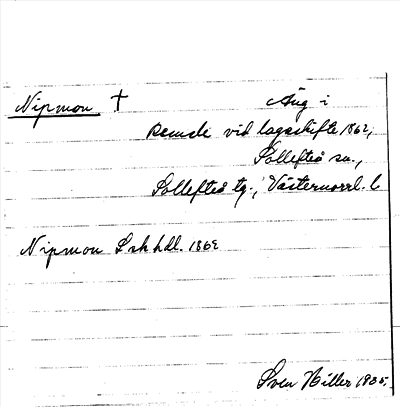 Nipmon † Äng i
Remsle vid lagaskifte 1862,
Sollefteå sn.,
Sollefteå tg., Västernorrl. l
Nipmon Lskhdl. 1862
Sven Hiller 1935.